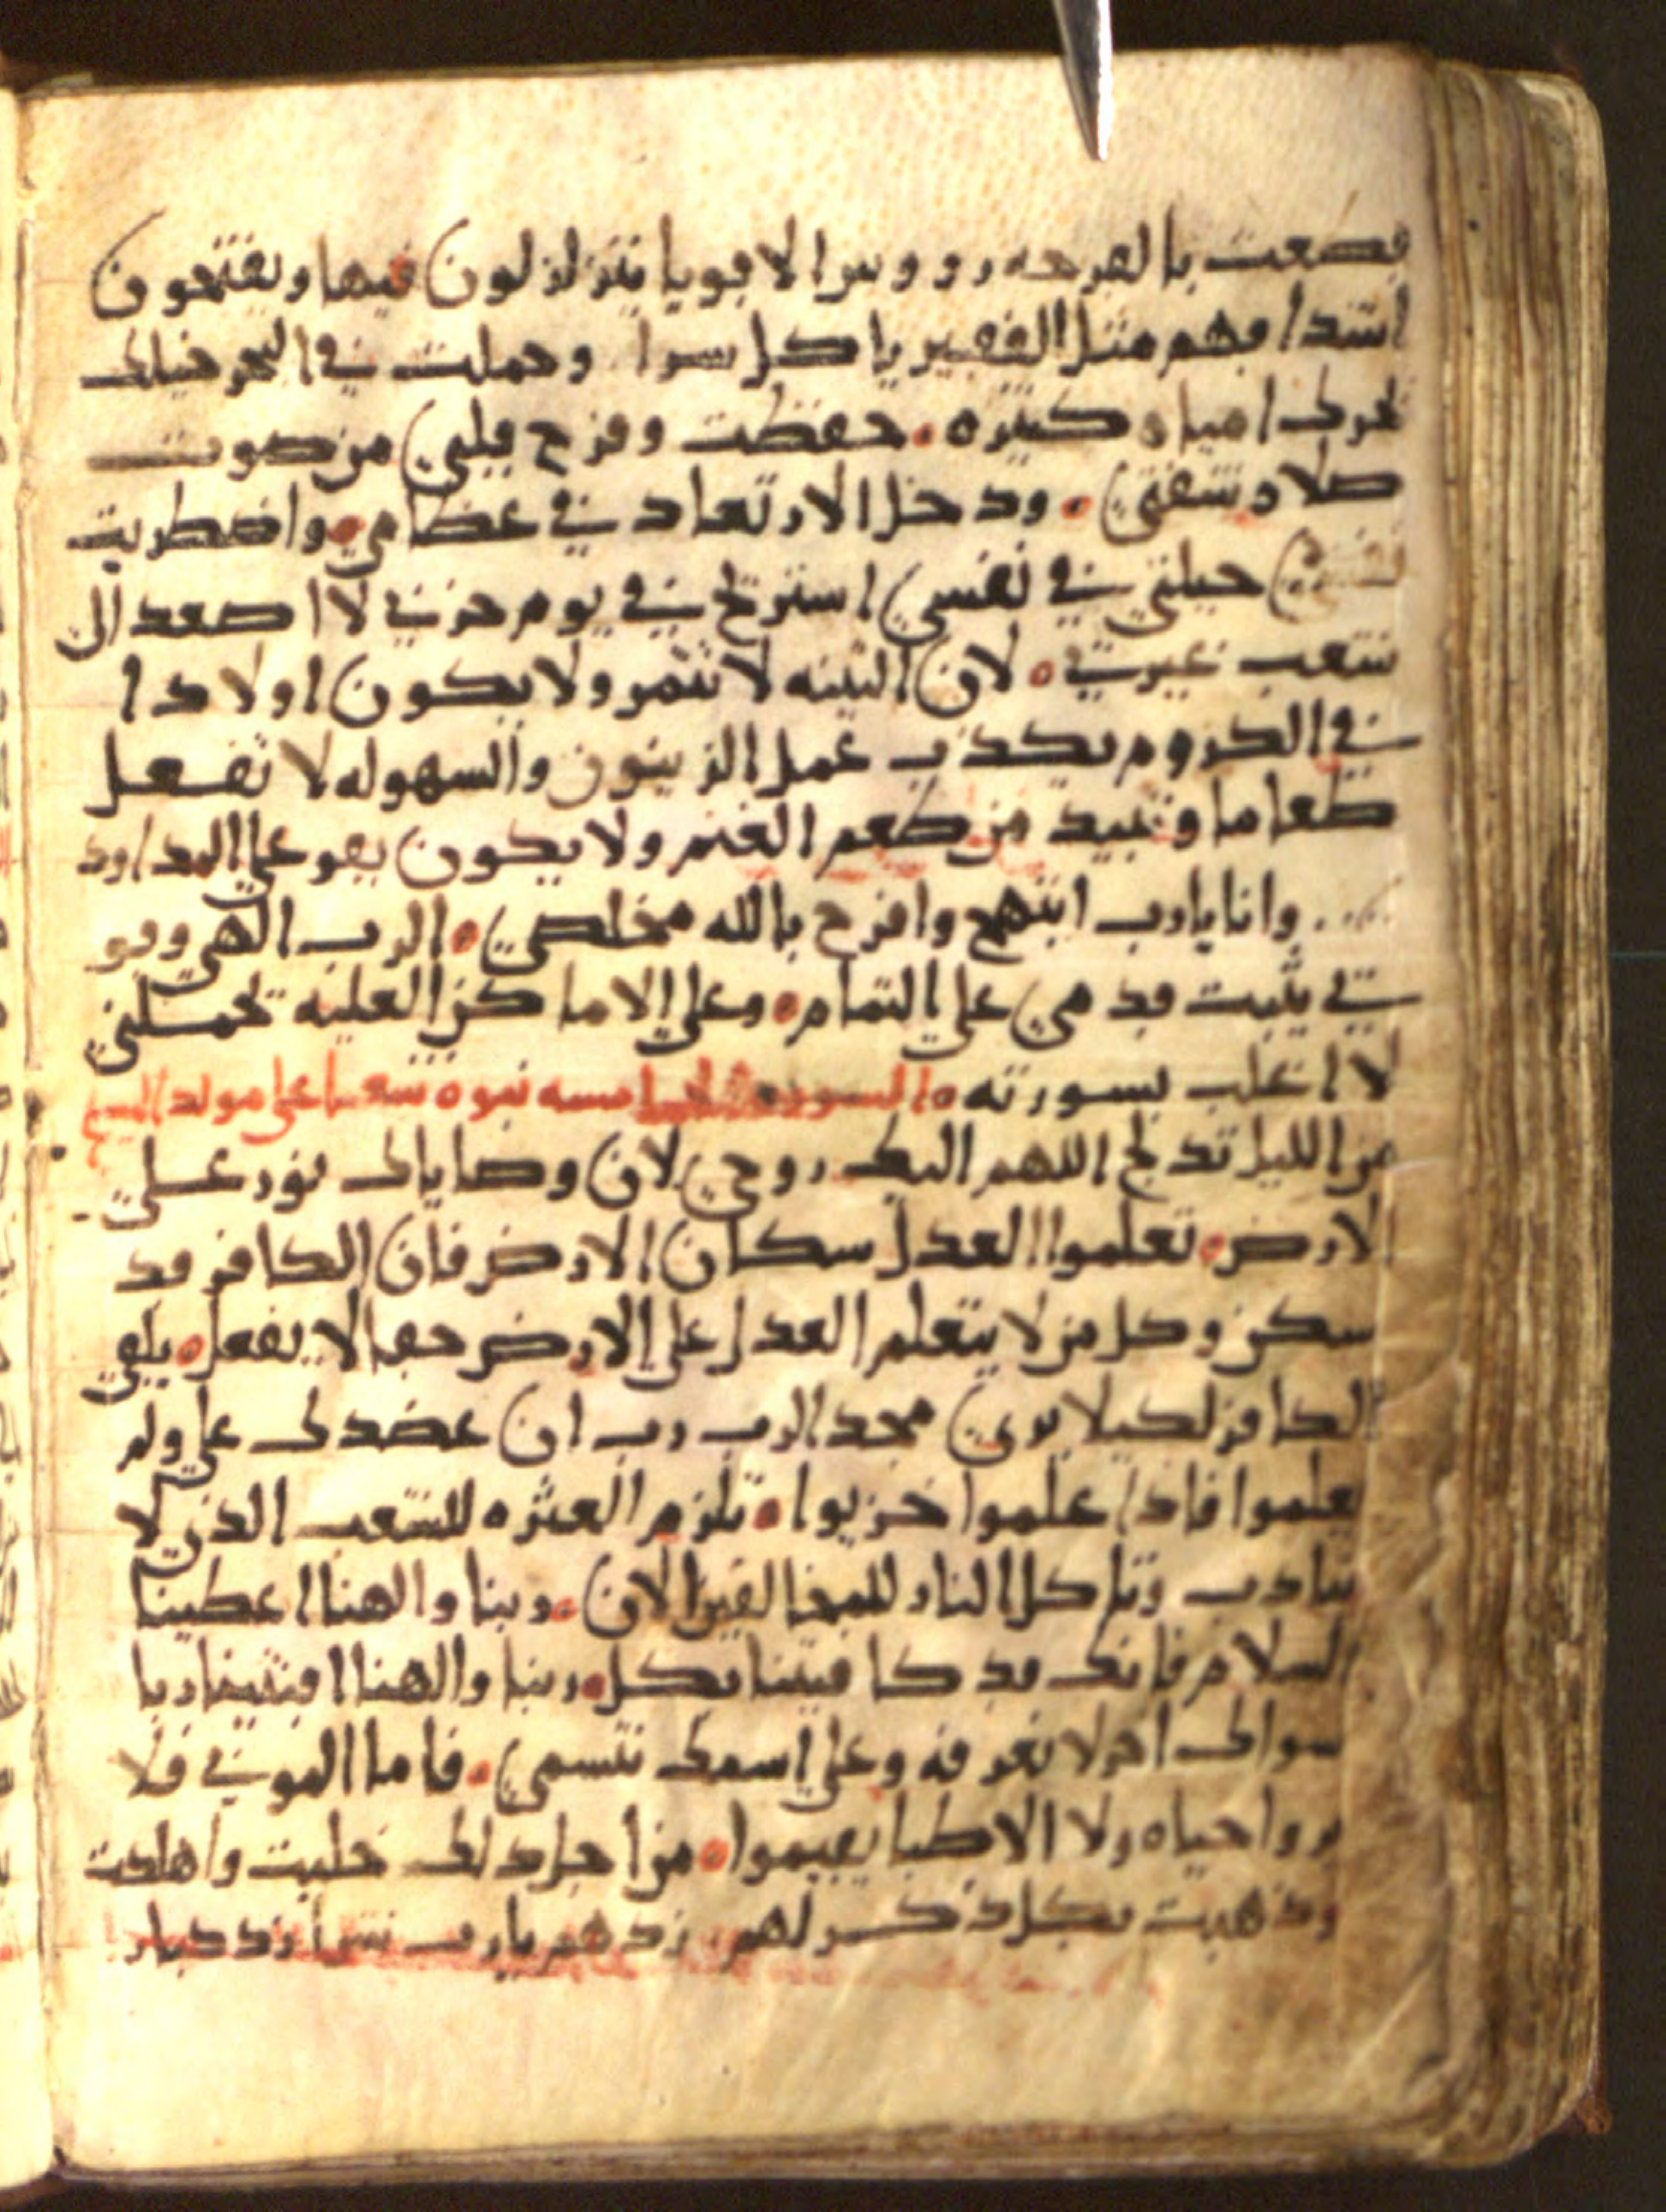 قصعت بالفرحه رووس الاقويا يتزلزلون فيها ويفتحون
اشداقهم مثل الفقير ياكل سرا وحملت في البحر خيلك
تحرك امياه كثيره. حفظت وفزع قلبي من صوت
صلاه شفتي. ودخل الارتعاد في عظامي. واضطربت
حيلتي في نفسي استريح في يوم حزني لا اصعد الى
شعب غربتي. لان التينه لا تثمر ولا يكون اولادا
في الكروم يكذب عمل الزيتون والسهوله لا تفعل
طعاما وتبيد من طعم الغنم ولا يكون بقر على المداود
وانا يارب ابتهج وافرح بالله مخلصي. الرب الهي وقو
تي يثبت قدمي على التمام. وعلى الاماكن العليه تحملني
لا اغلب بسورته. السوره الخامسه نبوه شعيا على مولد المسيح
من الليل تدلج اللهم اليك روحي لان وصاياك نور على
الارض. تعلموا العدل سكان الارض فان الكافر قد
سكن وكل من لا يتعلم العدل على الارض حقا لا يفعل. يلقى
الكافر لكيلا يرى مجد الرب رب ان عضدك على ولم
يعلموا فاذا علموا خزيوا. تلزم العثره للشعب الذي لا
يتادب وتاكل النار للمخالفين الان. ربنا والهنا اعطينا
السلام فانك قد كافيتنا بكل. ربنا والهنا اقتنينا ربا
سواك اخر لا نعرفه وعلى اسمك نتسمى. فاما الموتى فلا
يروا حياه ولا الاطبا يقيموا. من اجل ذلك خليت واهلكت
وذهبت بكل ذكر لهم. زدهم يارب شرا زد